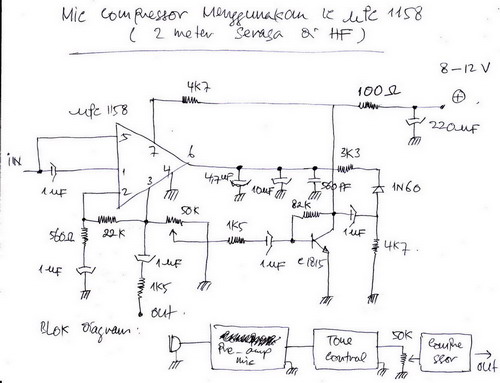 Mic Compressor Menggunakan IC μPC 1158
( 2 meter Serasa di HF )
8-12 V
4K7
100Ω
μPC 1158
220μF
5
7
6
iN
1
4
1μF
2
3
4,7μF
10μF
560PF
3K3
1N60
50K
82K
560Ω
22K
1K5
1μF
4K7
1μF
1μF
1μF
C1815
1K5
out
BLOK Diagram :
Pre-amp mic
Tone Control
50K
Compressor
out